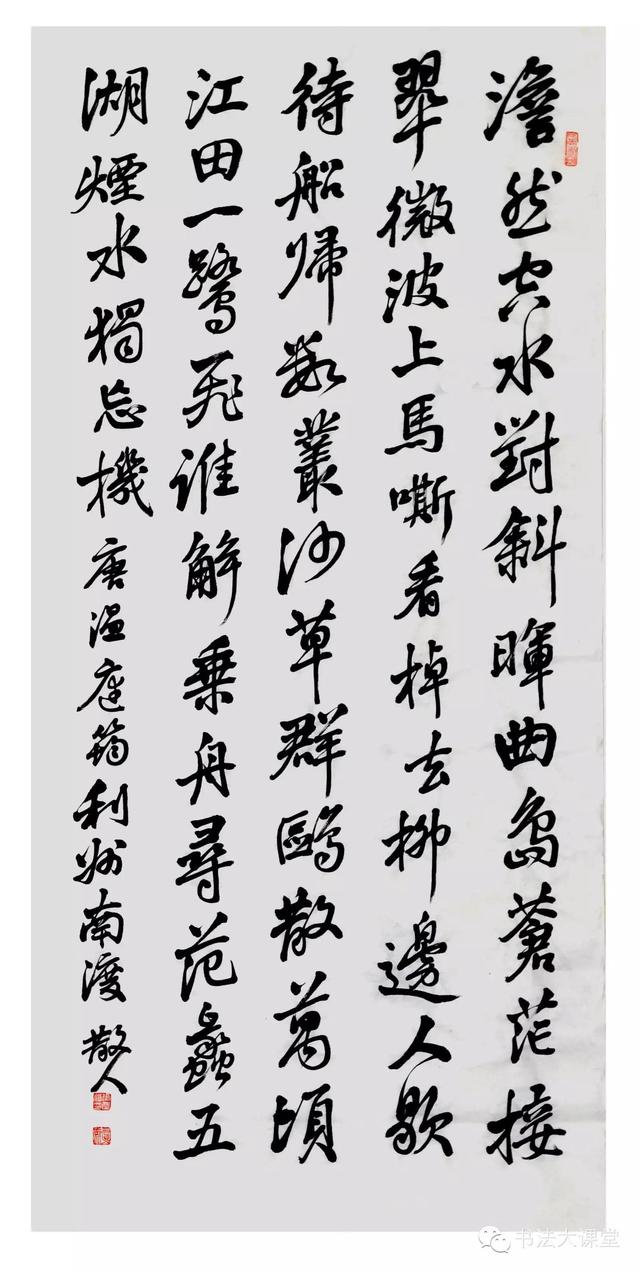 澹然空水對斜暉曲島蒼茫接
翠微波上馬嘶看棹去柳邊人歇
待船歸數叢沙草群鷗散萬頃
江田一鷺飛誰解乗舟尋范蠡五
湖煙水獨忘機唐温庭筠利州南渡散人
书法大课堂